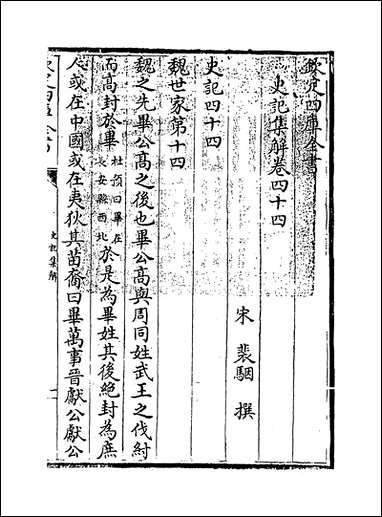 欽定四庫全書
史記集解卷四十四
宋 裴駰 撰
史記四十四
魏世家第十四
魏之先畢公高之後也畢公高與周同姓武王之伐紂
而高封於畢杜預曰畢在長安縣西北於是為畢姓其後絶封為庶
人或在中國或在夷狄其苗裔曰畢萬事晉獻公獻公
史記集解
一